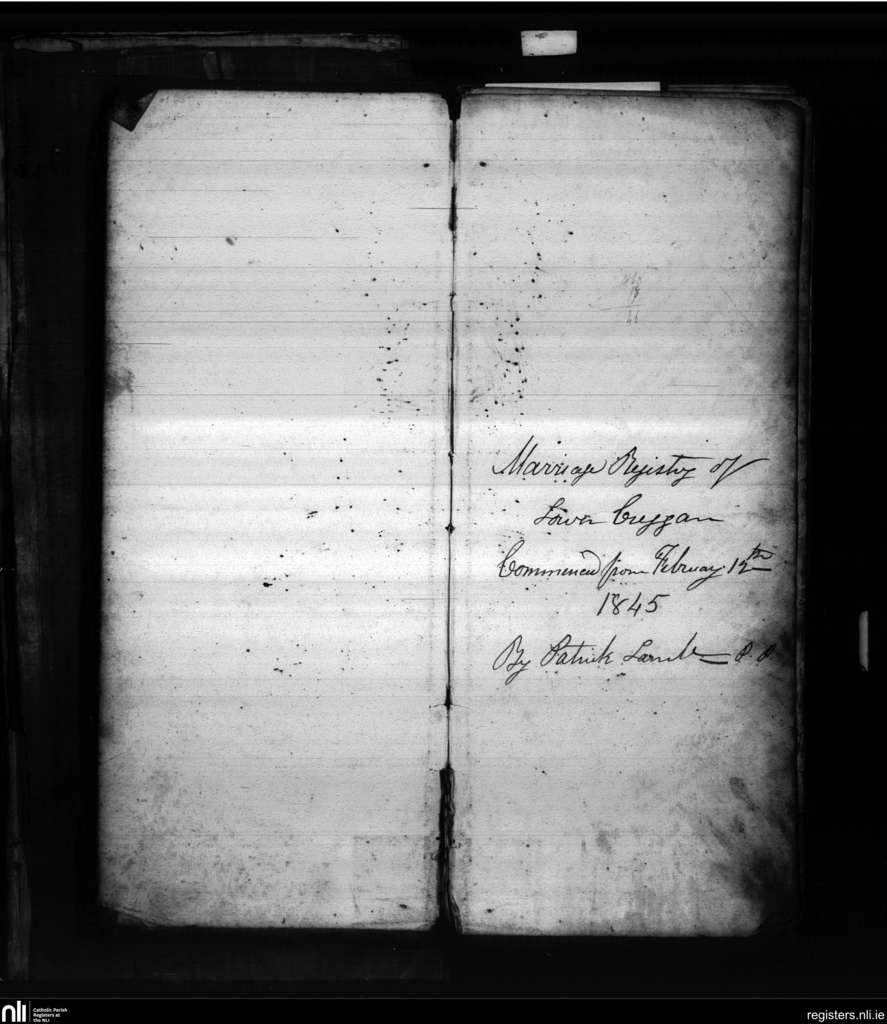 Marriage Registry of
Lower Creggan
Commenced from February 12th
1845
By Patrick Lamb P. P.
nli
Catholic Parish
Registers at
the NLI
registers.nli.ie